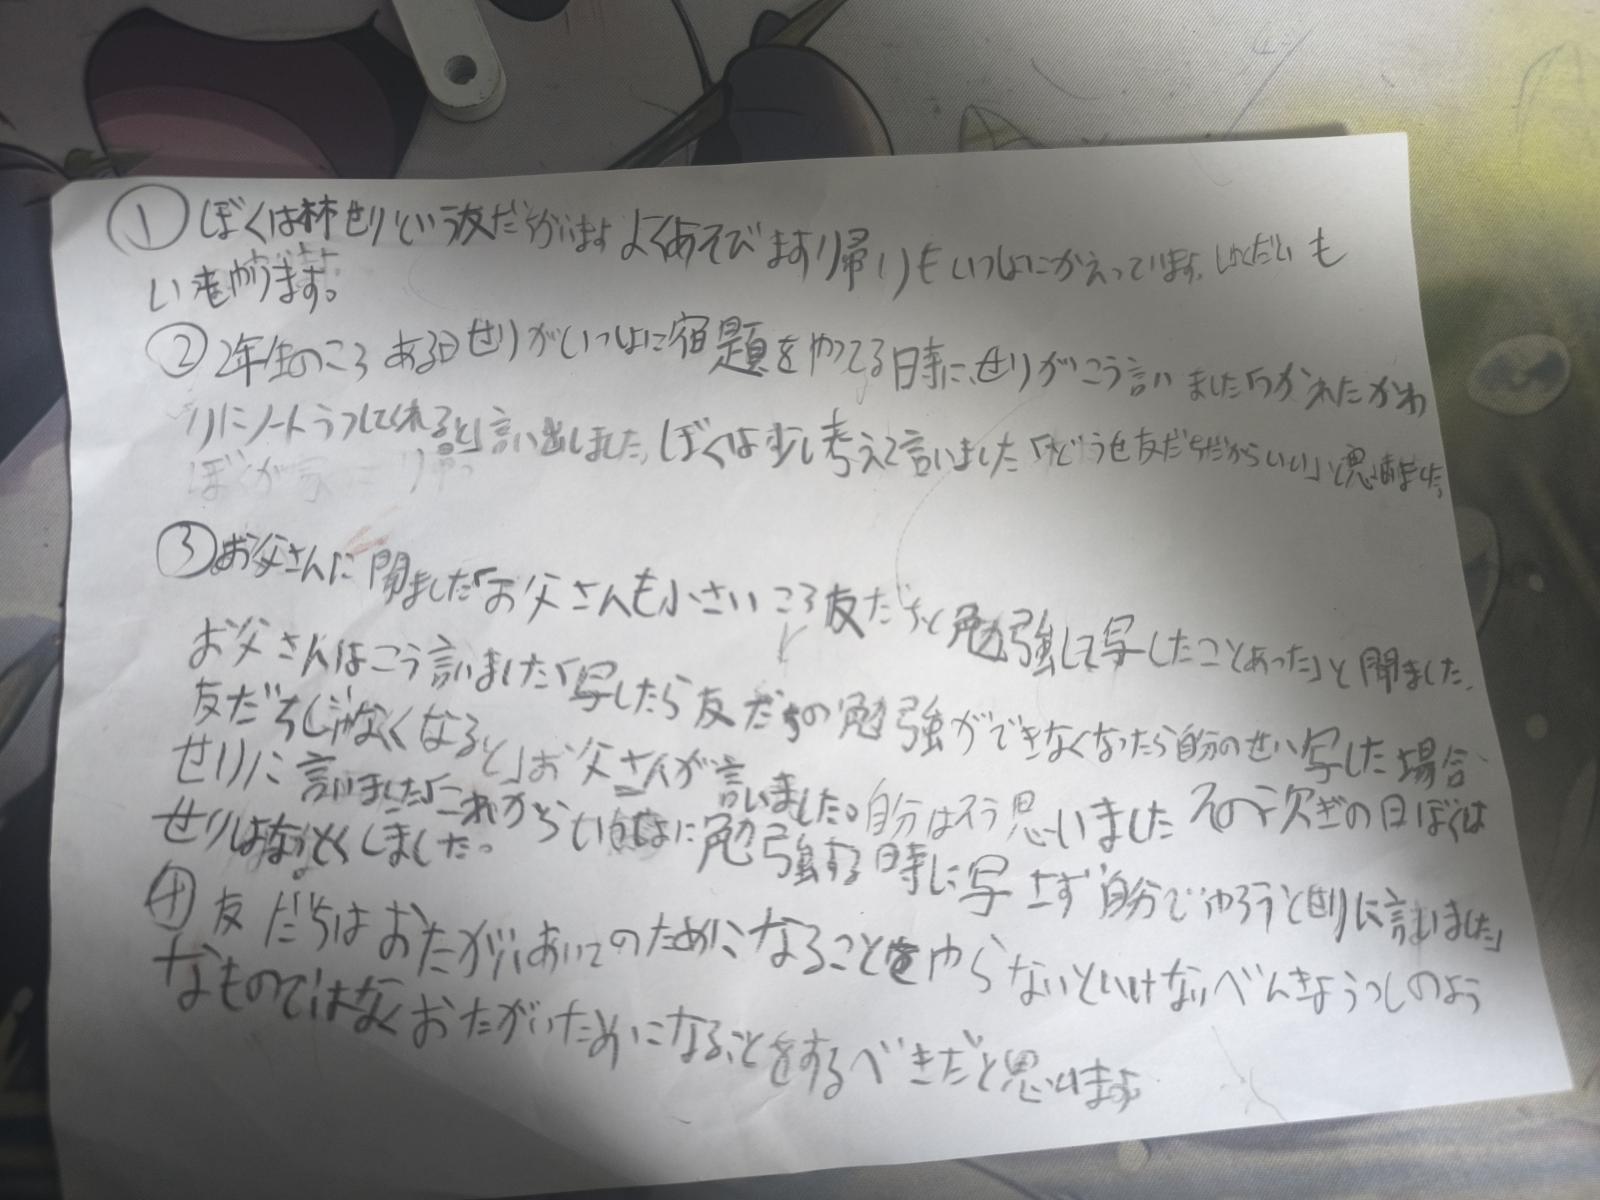 ① ぼくは林せりという友だちがいます よくあそびます 帰りもいつしょにかえっています。しゅくだいも
いもやります。
② 2年生のころ ある日せりがいっしょに宿題をやってる日時に、せりがこう言いました「つかれたかわ
りにノートうつしてくれると」言い出しました。ぼくは少し考えて言いました「どうせ友だちだからいい」と思いました
ぼくが家 り帰
③ お父さんに聞ました「お父さんも小さいころ友だちと勉強して写したことあった」と聞ました。
お父さんはこう言いました「写したら友だちの勉強ができなくなったら自分のせい写した場合
友だちじゃなくなると」お父さんが言いました。自分はそう思いました その次ぎの日ぼくは
せりに言いました「これからいっしょに勉強する時に写さず自分でやろうとせりに言いました」
せりはなっとくしました。
④ 友だちはおたがいあいてのためになることをやらないといけないべんきょうつしのよう
なものではなくおたがいためになることをするべきだと思います